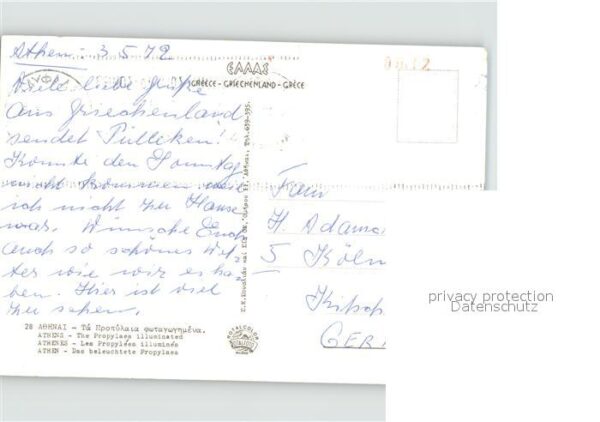 Athen - 3.5.72
Viele liebe Grüße
aus Griechenland
sendet Pülliken!
Konnte den Sonntag
nicht kommen weil
ich nicht zu Hause
war. Wünsche Euch
auch so schönes Wet-
ter wie wir es ha-
ben. Hier ist viel
zu sehen.
28 ΑΘΗΝΑΙ - Τά Προπύλαια φωταγωγημένα.
ATHENS - The Propylaea illuminated
ATHENES - Les Propylées illuminés
ATHEN - Das beleuchtete Propylaea
ΕΛΛΑΣ
GREECE - GRIECHENLAND - GRÈCE
Frau
H. Adams
5 Köln
Kitsch
GER
privacy protection
Datenschutz